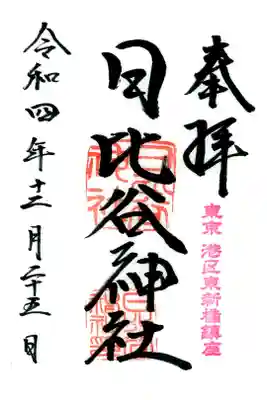 奉拝
東京 港区東新橋鎮座
日比谷神社
令和四年十二月二十五日